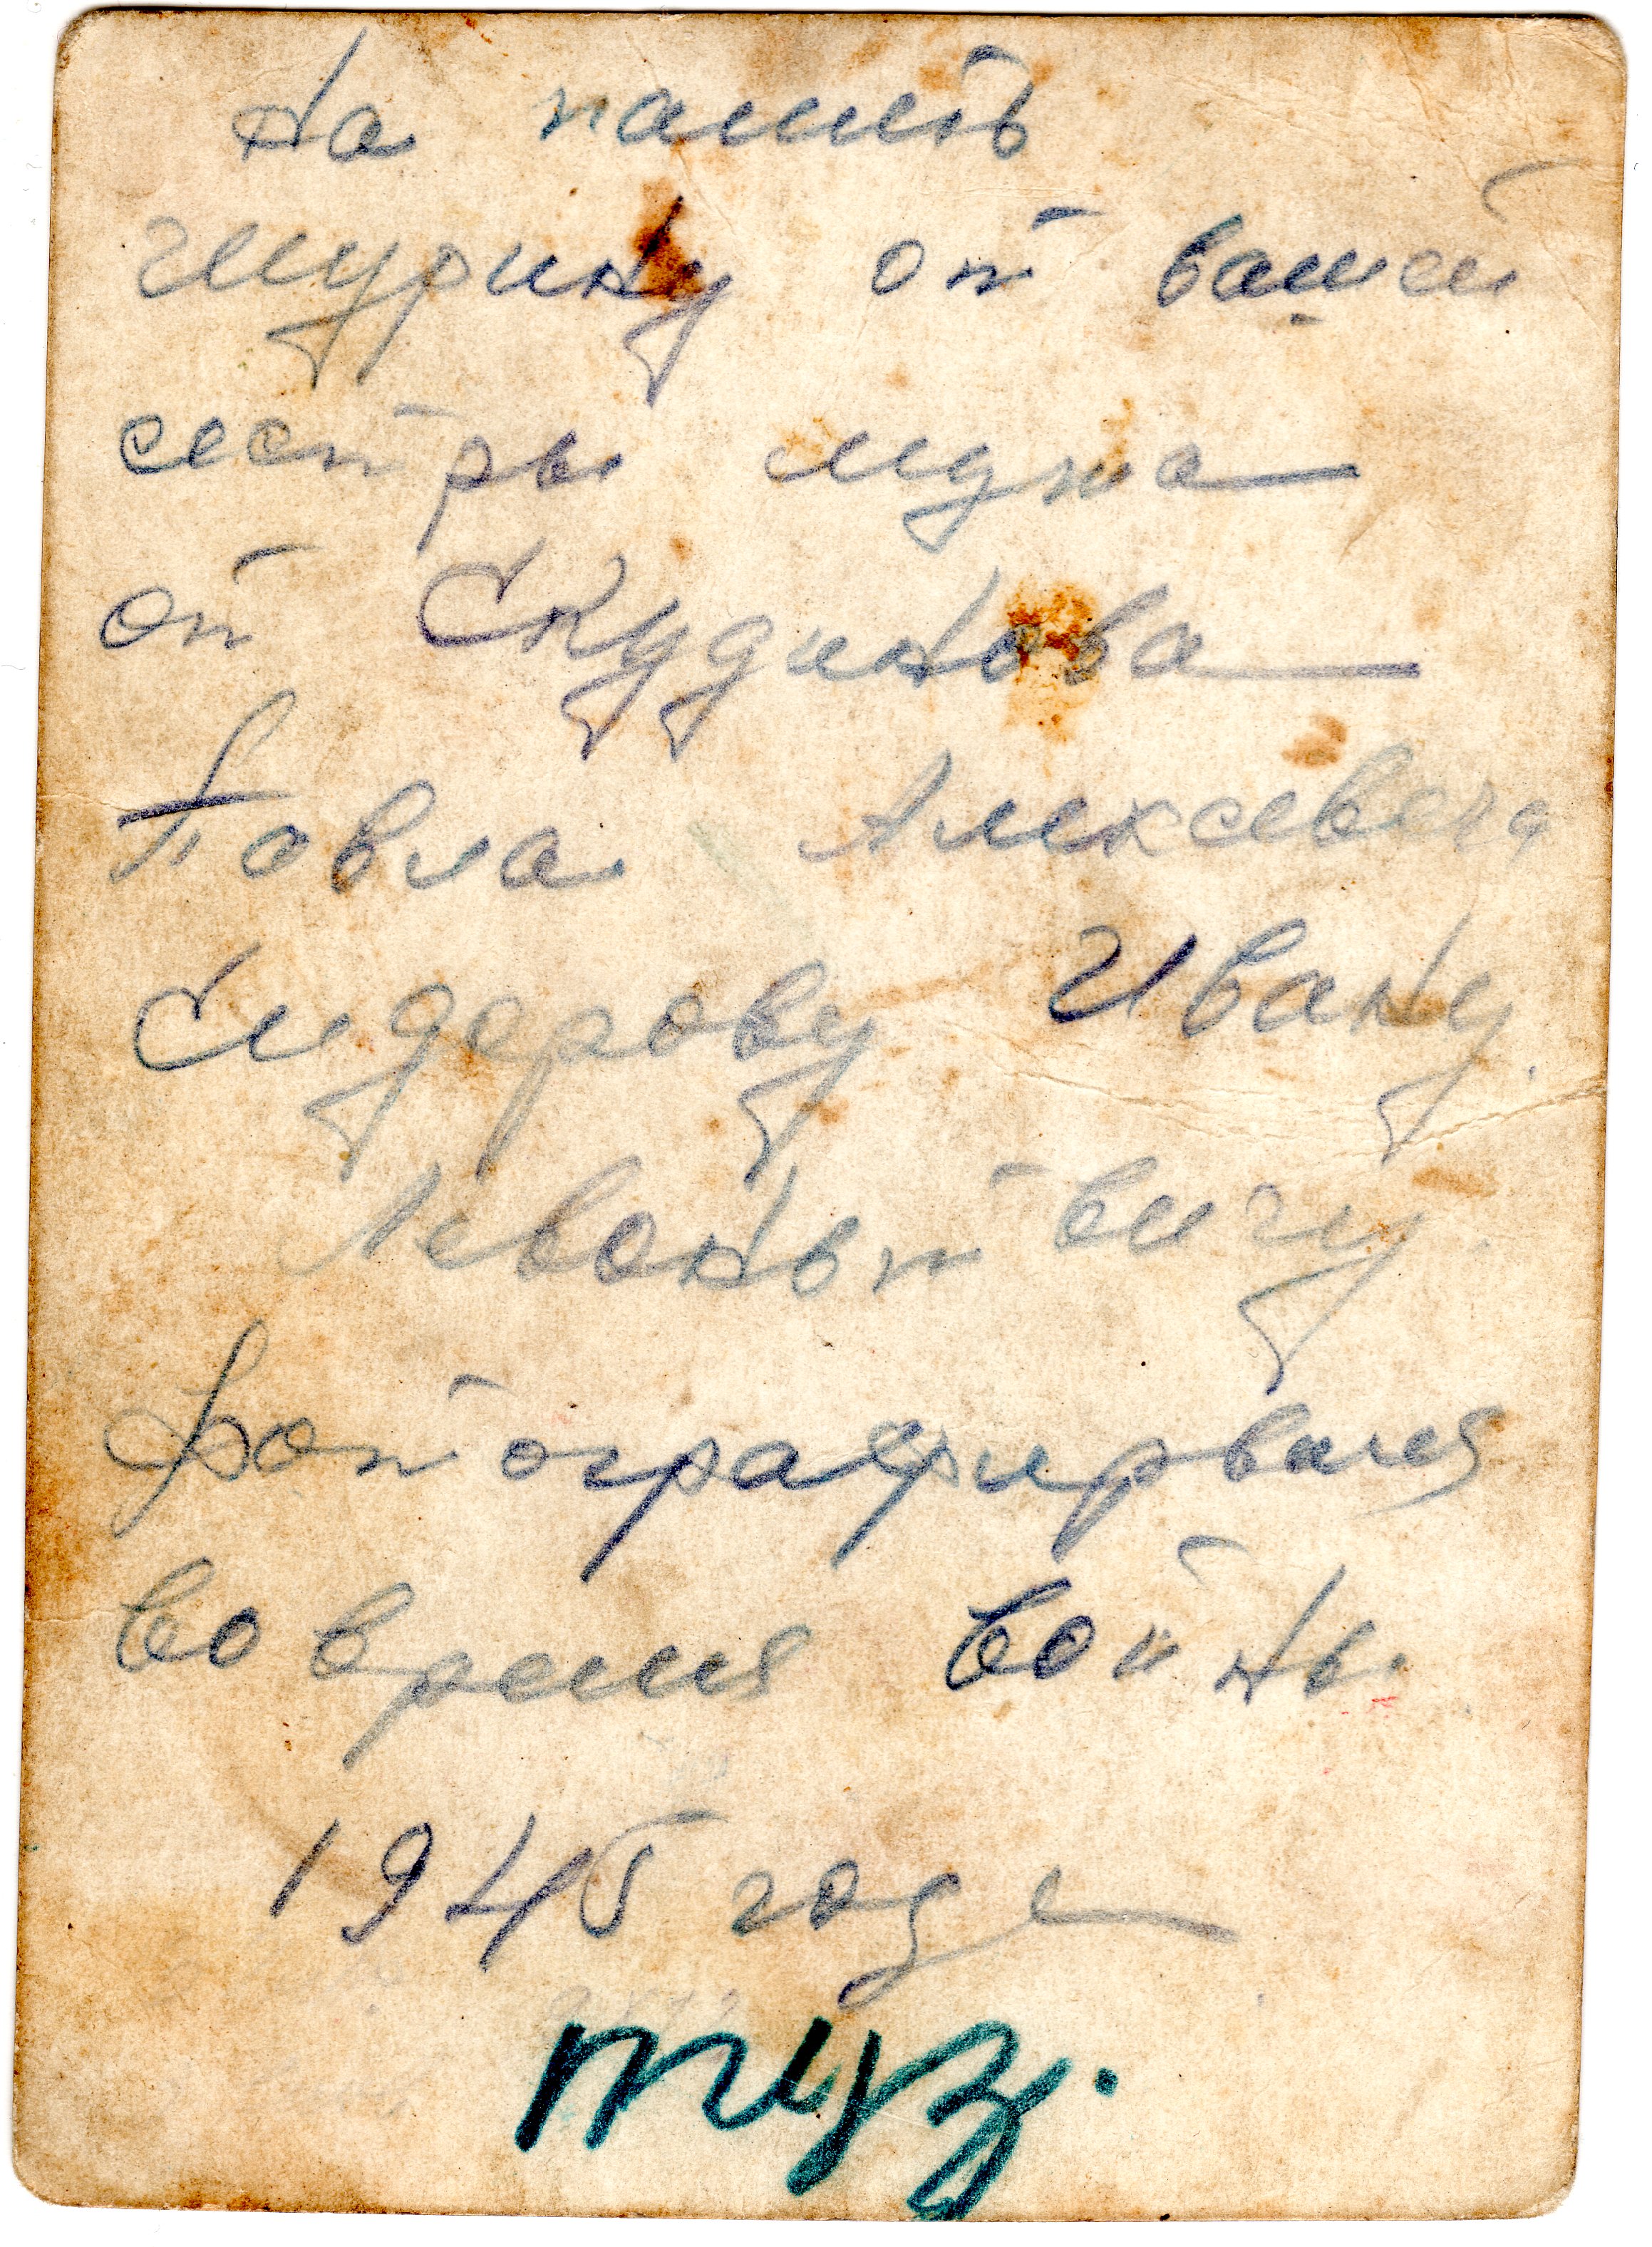 На память
шурину от вашей
сестры мужа
от Скудинова
Повла Алексевеча
Сидорову Ивану
Левоньтвичу
фотографирвался
во время войны
1945 годе